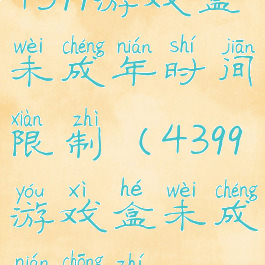 4399游戏盒
wèi chéng nián shí jiān
未成年时间
xiàn zhì
限制（4399
yóu xì hé wèi chéng
游戏盒未成
nián chōng zhí